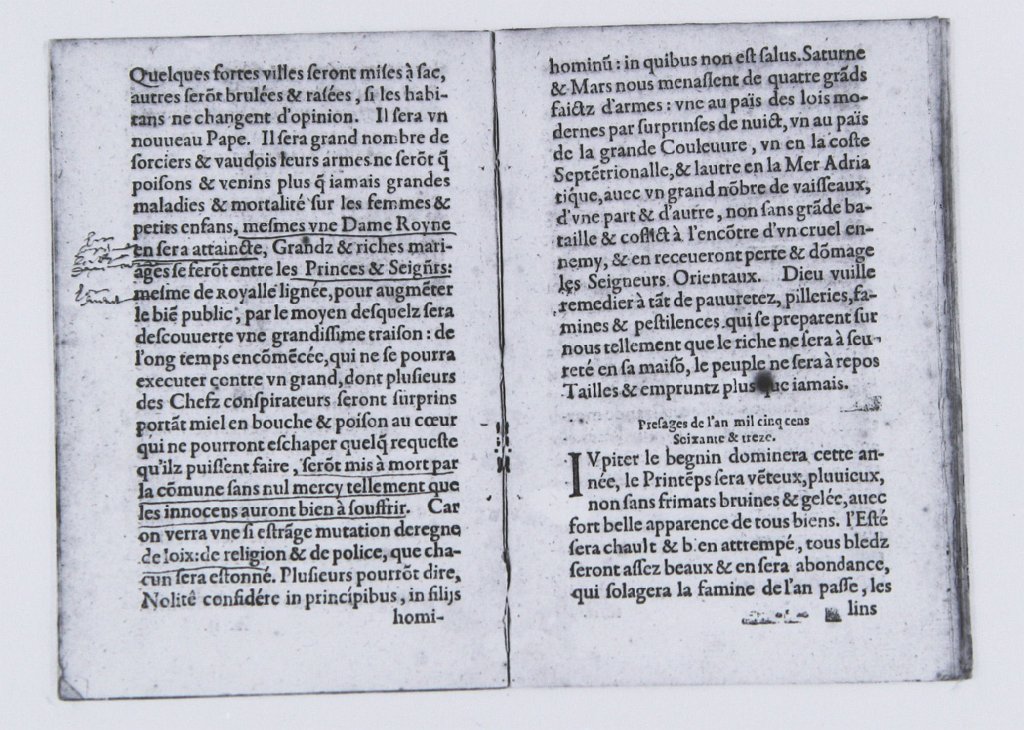 Quelques fortes villes ſeront miſes à ſac,
autres ſerõt brulées & raſées, ſi les habi-
tans ne changent d'opinion. Il ſera vn
nouueau Pape. Il ſera grand nombre de
ſorciers & vaudois leurs armes ne ſerõt q̃
poiſons & venins plus q̃ iamais grandes
maladies & mortalité ſur les femmes &
petits enfans, meſmes vne Dame Royne
en ſera attaincte, Grandz & riches mari-
ages ſe ferõt entre les Princes & Seigñrs:
meſme de Royalle lignée, pour augmẽter
le biẽ public, par le moyen deſquelz ſera
deſcouuerte vne grandiſſime traiſon: de
l'ong temps encõmẽcée, qui ne ſe pourra
executer contre vn grand, dont pluſieurs
des Chefz conſpirateurs ſeront ſurprins
portãt miel en bouche & poiſon au cœur
qui ne pourront eſchaper quelq̃ requeſte
qu'ilz puiſſent faire, ſerõt mis à mort par
la cõmune ſans nul mercy tellement que
les innocens auront bien à ſouffrir. Car
on verra vne ſi eſtrãge mutation deregne
de loix: de religion & de police, que cha-
cun ſera eſtonné. Pluſieurs pourrõt dire,
Nolitê conſidére in principibus, in filijs
homi-
hominũ: in quibus non eſt ſalus. Saturne
& Mars nous menaſſent de quatre grãds
faictz d'armes: vne au païs des lois mo-
dernes par ſurprinſes de nuict, vn au païs
de la grande Couleuure, vn en la coſte
Septẽtrionalle, & lautre en la Mer Adria
tique, auec vn grand nõbre de vaiſſeaux,
d'vne part & d'autre, non ſans grãde ba-
taille & cõflict à l'encõtre d'vn cruel en-
nemy, & en receueront perte & dõmage
les Seigneurs Orientaux. Dieu vuille
remedier à tãt de pauuretez, pilleries, fa-
mines & peſtilences qui ſe preparent ſur
nous tellement que le riche ne ſera à ſeu-
reté en ſa maiſõ, le peuple ne ſera à repos
Tailles & empruntz plus que iamais.
Preſages de l'an mil cinq cens
Soixante & treze.
IVpiter le begnin dominera cette an-
née, le Printẽps ſera vẽteux, pluuieux,
non ſans frimats bruines & gelée, auec
fort belle apparence de tous biens. l'Eſté
ſera chault & bien attrempé, tous bledz
ſeront aſſez beaux & en ſera abondance,
qui ſolagera la famine de l'an paſſe, les
lins